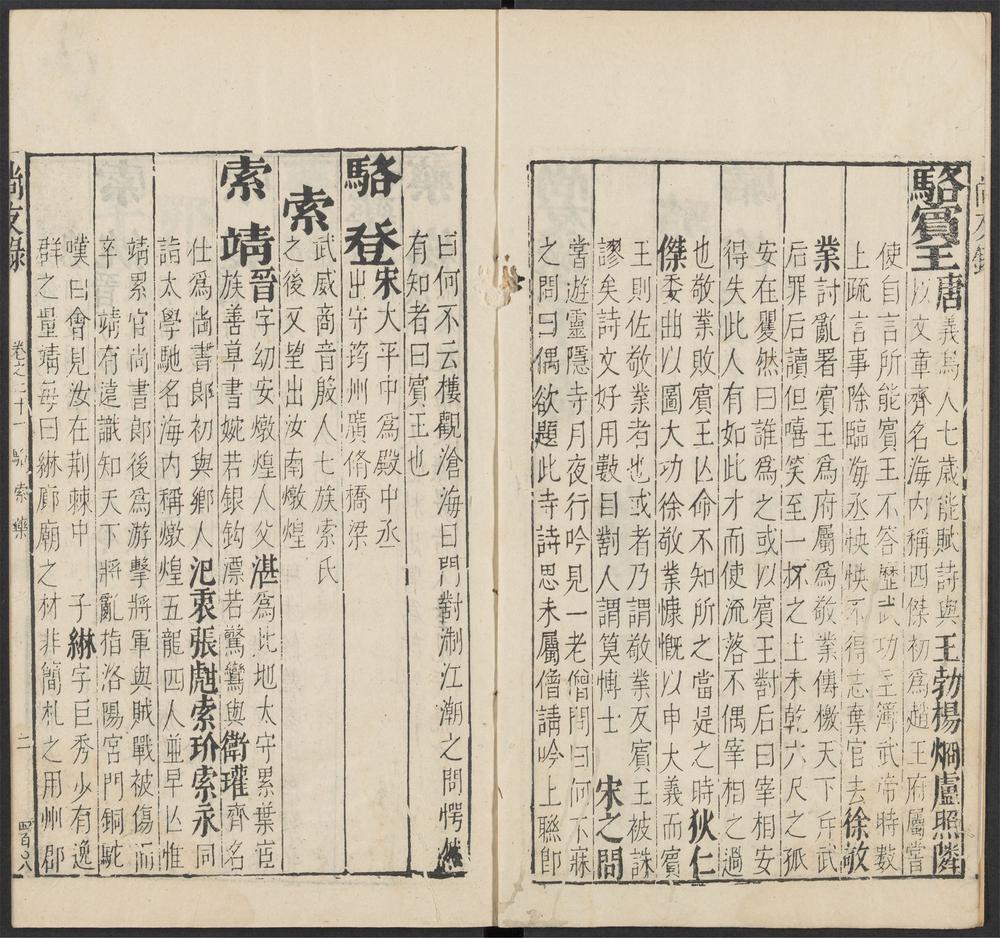 駱賓王唐義烏人七歲能賦詩與王勃楊烱盧照隣
以文章齊名海内稱四傑初爲趙王府屬嘗
使自言所能賓王不答歷武功主簿武帝時數
上疏言事除臨海丞怏怏不得志棄官去徐敬
業討亂署賓王爲府屬爲敬業傳檄天下斥武
后罪后讀但嘻笑至一抔之土未乾六尺之孤
安在矍然曰誰爲之或以賓王對后曰宰相安
得失此人有如此才而使流落不偶宰相之過
也敬業敗賓王亾命不知所之當是之時狄仁
傑委曲以圖大功徐敬業慷慨以申大義而賓
王則佐敬業者也或者乃謂敬業反賓王被誅
謬矣詩文好用數目對人謂筭愽士 宋之問
嘗遊靈隱寺月夜行吟見一老僧問曰何不寐
之問曰偶欲題此寺詩思未屬僧請吟上聯卽
曰何不云樓觀滄海日門對浙江潮之問愕然
有知者曰賓王也
駱登宋大平中爲殿中丞
出守筠州廣脩橋梁
索
武威商音殷人七族索氏
之後又望出汝南燉煌
索靖晉字幼安燉煌人父湛爲北地太守累葉宦
族善草書婉若銀鈎漂若驚鸞與衛瓘齊名
仕爲尚書郎初與鄉人汜衷張彪索玠索永同
詣太學馳名海内稱燉煌五龍四人並早亾惟
靖累官尚書郎後爲游擊將軍與賊戰被傷而
卒靖有遠識知天下將亂指洛陽宮門銅駝
嘆曰會見汝在荆棘中 子綝字巨秀少有逸
群之量靖每曰綝廊廟之材非簡札之用州郡
尚友錄 卷之二十一 駱 索 樂 二